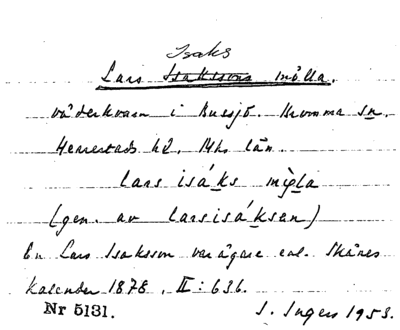 Isaks
Lars Isakssons mölla.
väderkvarn i Bussjö. Bromma sn.
Herrestads hd, Mh. län.
lars isáks mø̀la
(gen. av larsisáksan)
En Lars Isaksson var ägare enl. Skånes
kalender 1878, II: 636.
Nr 5131. I. Ingers 1953.